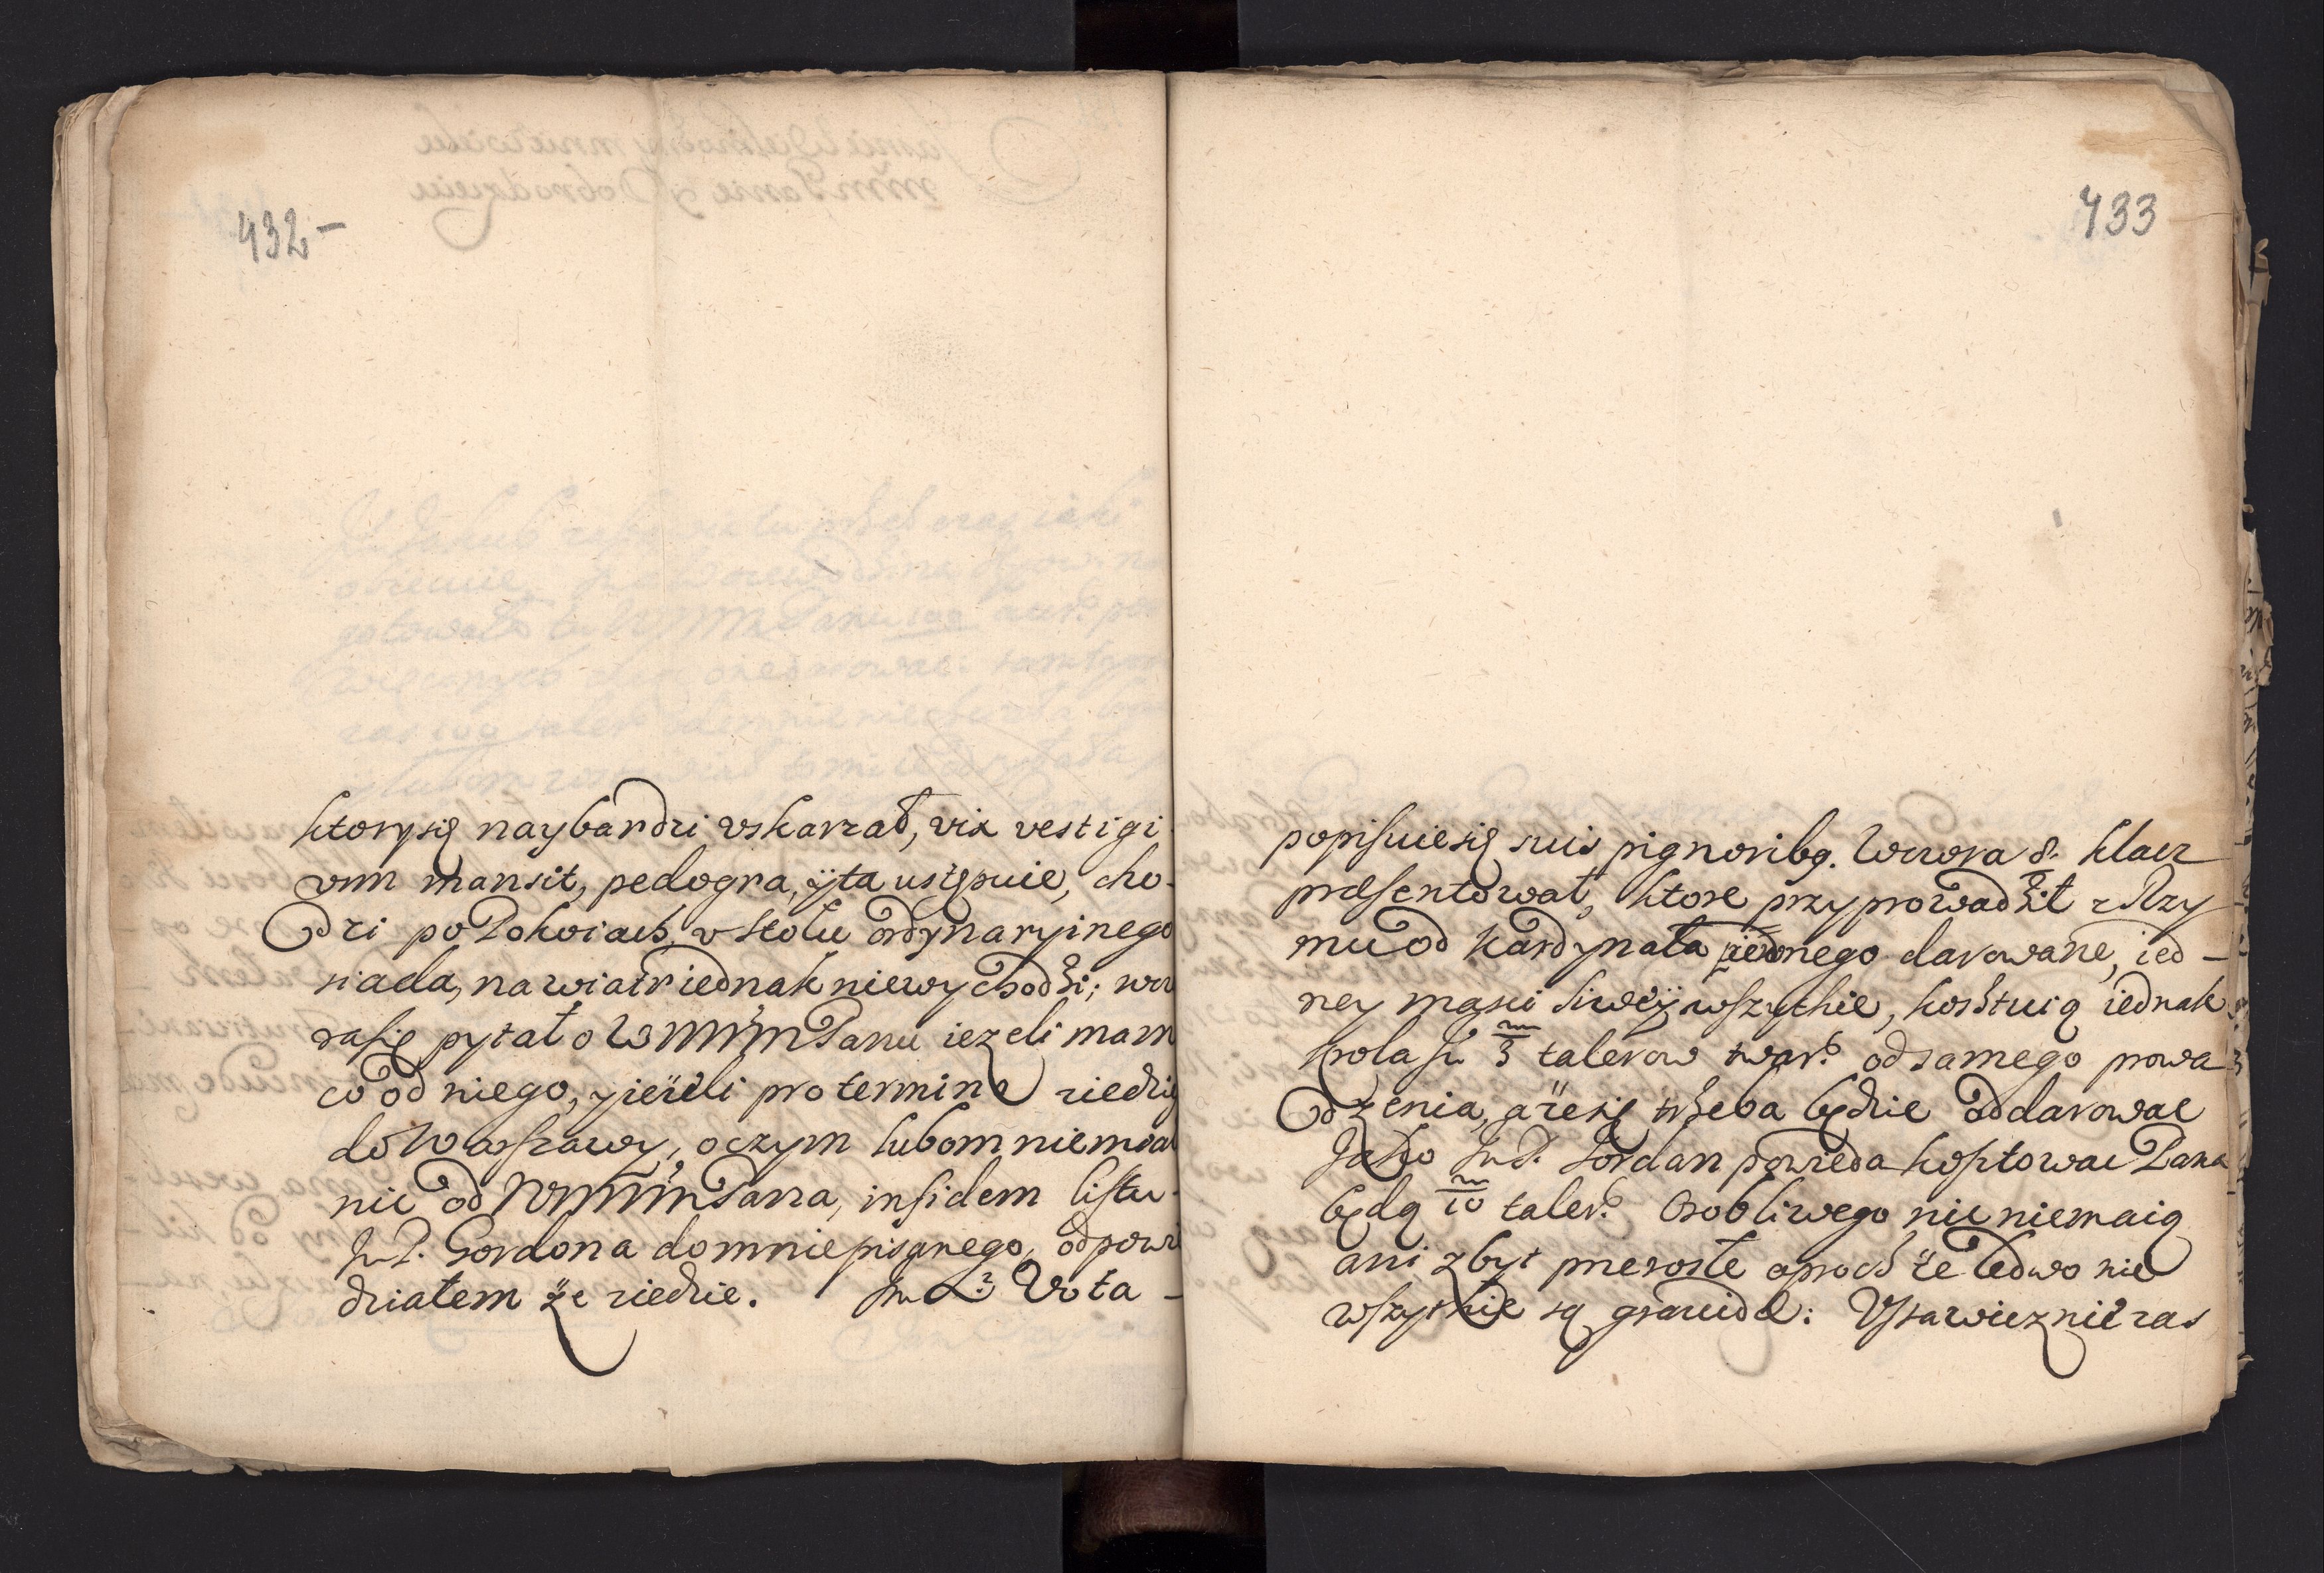 432-
ktory się naybardzi uskarzał, vix vestigi
um mansit, pedogra, ÿ ta ustępuie, cho-
dzi po Pokoiach, v stołu ordynaryinego
siada, na wiatr iednak niewychodzi; wczo
rasię pytał o WMMM Panu iezeli mam
co od niego, y ieżeli pro termino ziedzie
do Warszawy, o czym lubom niemiał
nic od WMMM Pana, in fidem listu
Jm P. Gordona do mnie pisanego, odpowi
działem że ziedzie. Jm X. Vota-
433
popisuie się suis pignoribq. Wczora 8. klacz
præsentował, ktore przyprowadził z Rzy
mu od Kardynała iednego darowane, ied-
ney maści siwey wszytkie, kosztuią iednak
3 talerow twar. od samego prowa
dzenia, a że się trzeba będzie oddarowac
Jako Jm P. Jordan powieda kosztowac Pana
będą 10 taler. Osobliwego nic niemaią
ani zbyt prerosłe oproch że ledwo nie
wszytkie są gravidæ: Ustawicznie zas